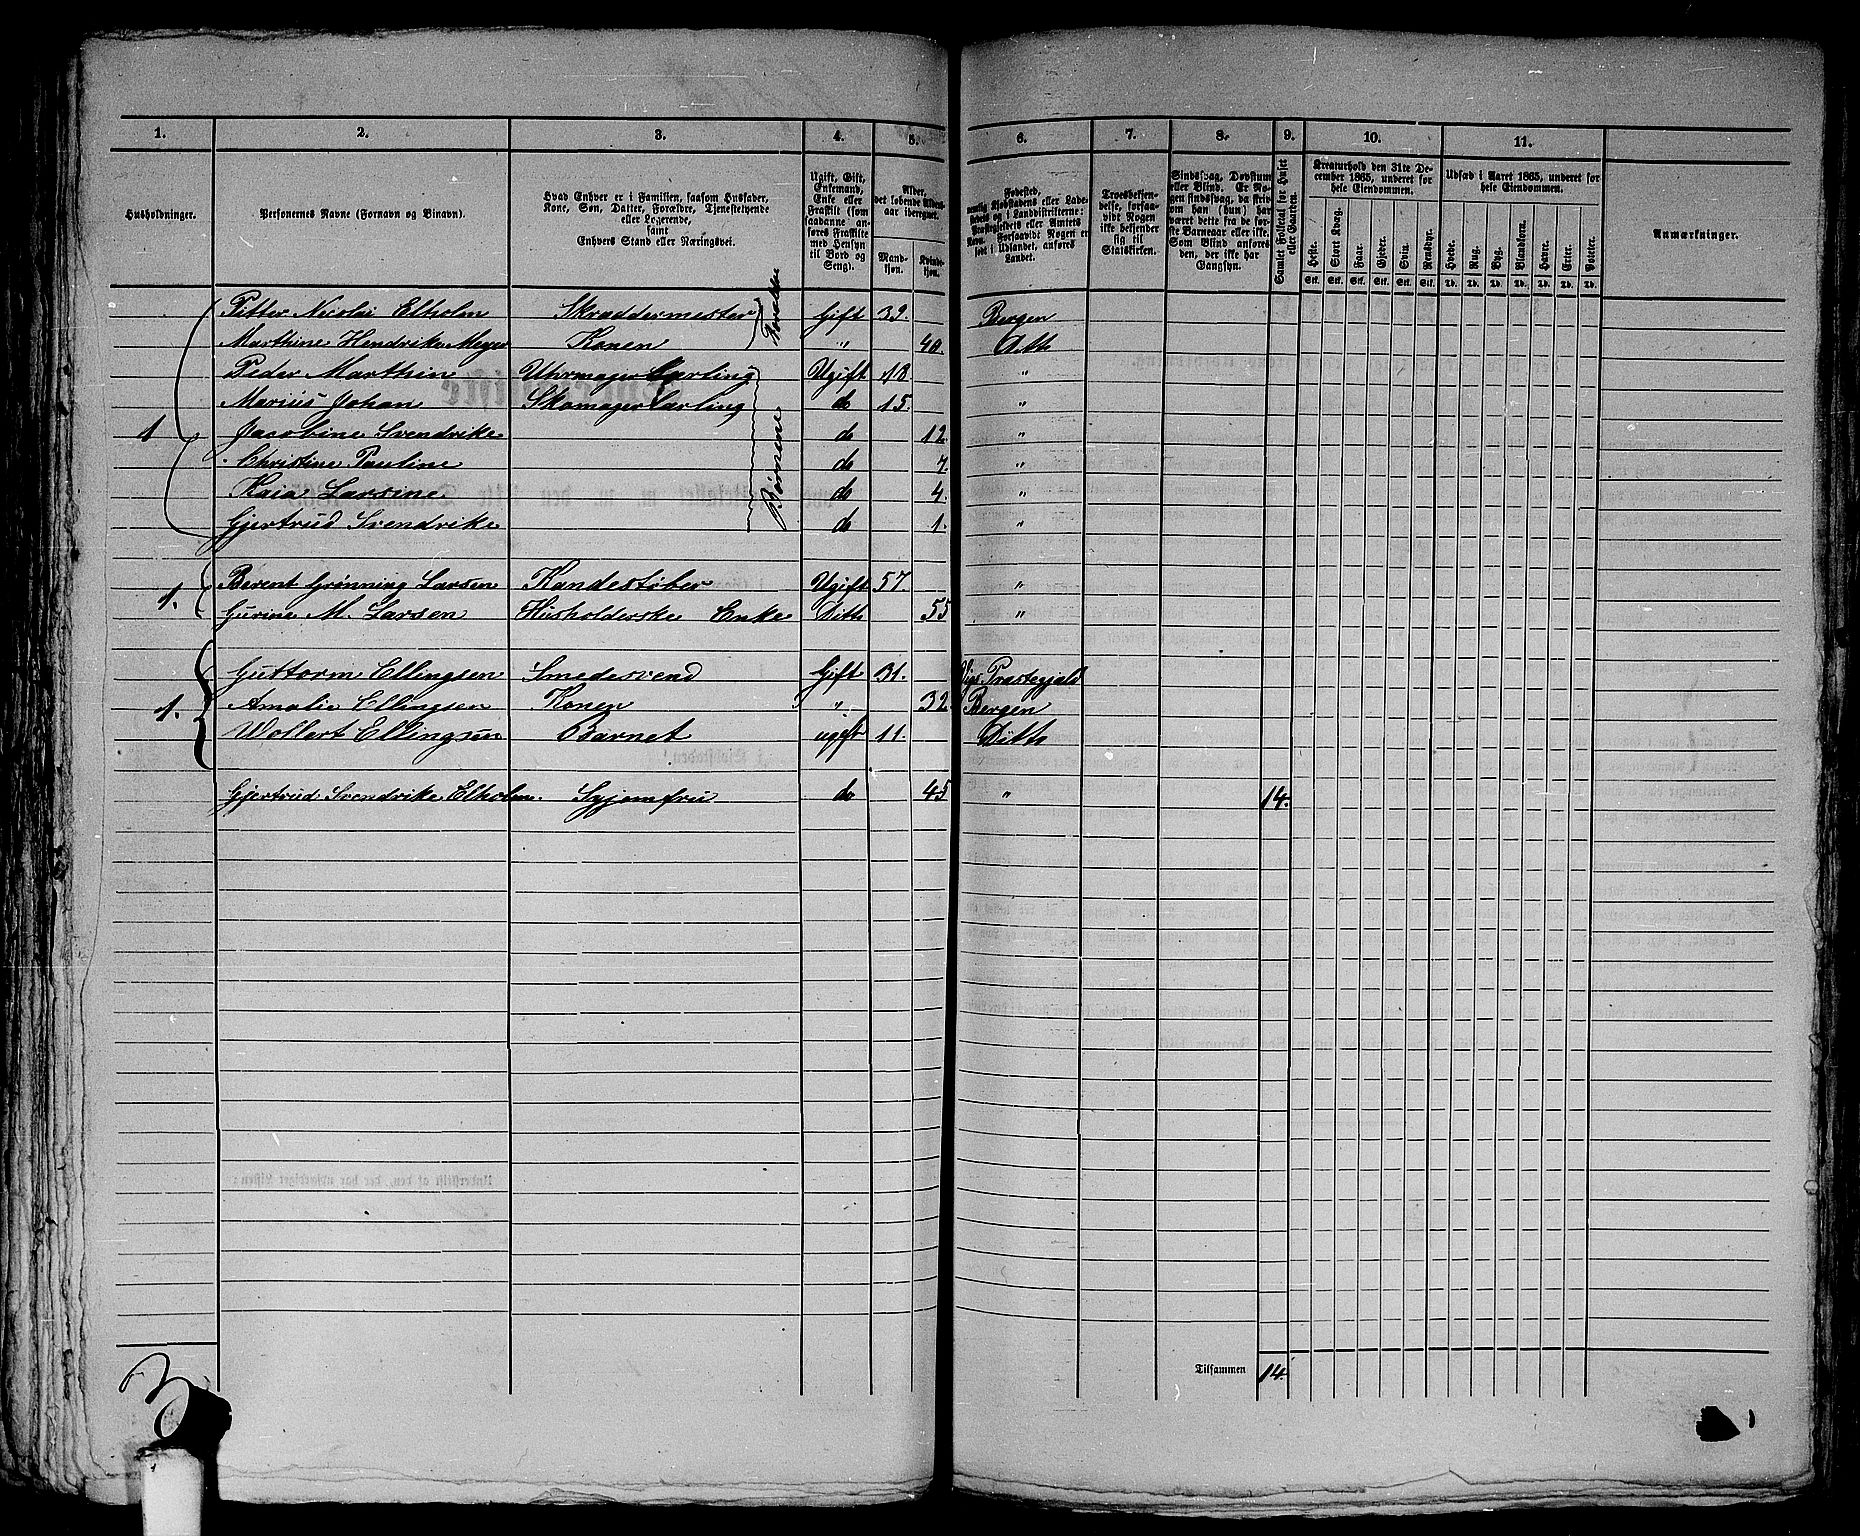 1. 2. 3. 4. 5. 6. 7. 8. 9. 10. 11.
Husholdninger.
Personernes Navne (Fornavn og Binavn).
Hvad Enhver er i Familien, saasom Husfader,
Kone, Søn, Datter, Forældre, Tjenestetyende
eller Logerende,
samt
Enhvers Stand eller Næringsvei.
Ugift, Gift,
Enkemand,
Enke eller
Fraskilt (som
saadanne an-
føres Fraskilte
med Hensyn
til Bord og
Seng).
Alder,
det løbende Alders-
aar iberegnet.
Mand-
kjøn.
Kvinde-
kjøn.
Fødested,
nemlig Kjøbstadens eller Lade-
stedets og i Landdistrikterne:
Præstegjeldets eller Amtets
Navn. Forsaavidt Nogen er
født i Udlandet, anføres
Landet.
Troesbekjen-
delse, forsaa-
vidt Nogen
ikke bekjender
sig til
Statskirken.
Sindssvag, Døvstum
eller Blind. Er No-
gen sindssvag, da skri-
ves om han (hun) har
været dette fra de før-
ste Barneaar eller ikke.
Som Blind anføres
den, der ikke har
Gangsyn.
Samlet Folketal for Huset
eller Gaarden.
Kreaturhold den 31te De-
cember 1865, underet for
hele Eiendommen.
Heste. Stort Kvæg. Faar. Gjeder. Svin. Rensdyr.
Stk. Stk. Stk. Stk. Stk. Stk.
Udsæd i Aaret 1865, underet for
hele Eiendommen.
Hvede. Rug. Byg. Blandkorn. Havre. Erter. Poteter.
Td. Td. Td. Td. Td. Td. Td.
Anmærkninger.
Petter Nicolai Elholm Skræddermester Gift 39. Bergen
Marthine Hendrike Meyer Konen " 40. Ditto
Forældre
Peder Marthin Uhrmagerlærling Ugift 18 "
Marius Johan Skomagerlærling do 15. "
1 Jacobine Svendrike do 12 "
Christine Pauline do 7 "
Kaia Larsine do 4. "
Gjertrud Svendrike do 1. "
Børnene
1. Berent Grønning Larsen Kandestøber Ugift 57. "
Gurine M. Larsen Husholderske Enke Ditto 55 "
Guttorm Ellingsen Smedesvend Gift 31. Præstegjeld
1. Amalie Ellingsen Konen " 32 Bergen
Wollert Ellingsen Barnet ugift 11. Ditto
Gjertrud Svendrike Elholm. Syjomfru do 45 " 14.
Tilsammen 14.
3